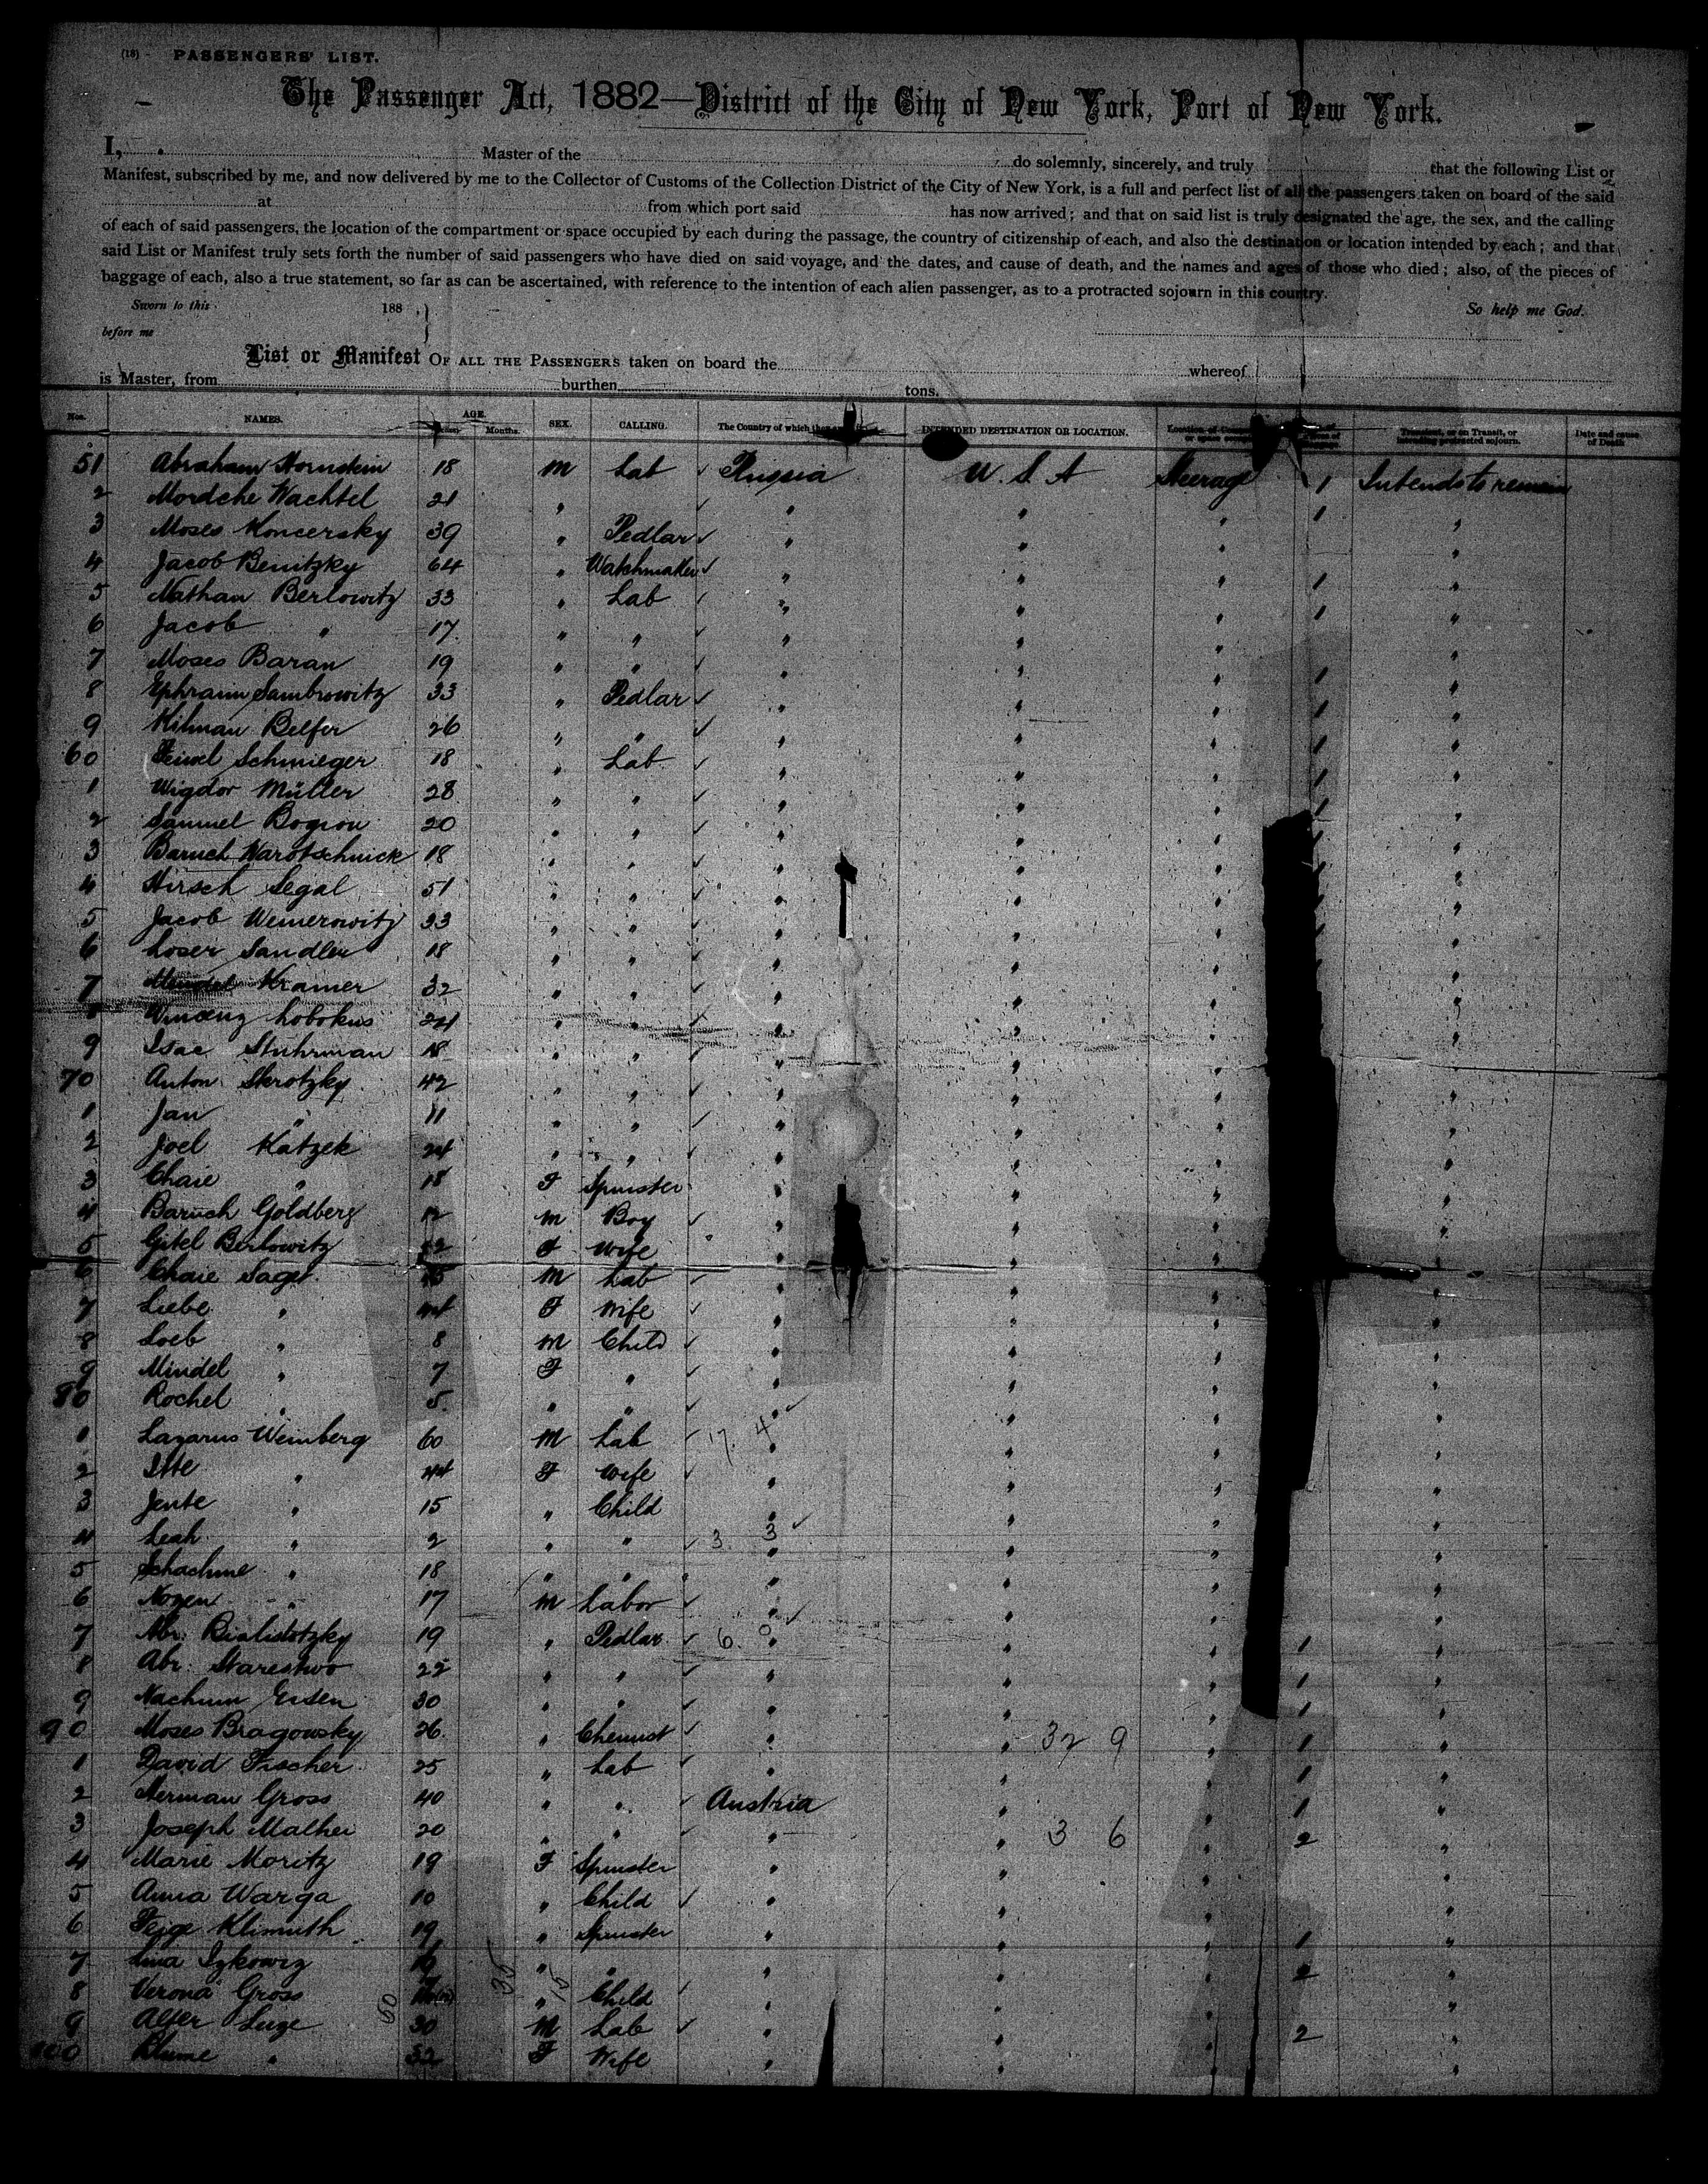 (18) - PASSENGERS' LIST.
The Passenger Act, 1882—District of the City of New York, Port of New York.
I, Master of the do solemnly, sincerely, and truly that the following List or
Manifest, subscribed by me, and now delivered by me to the Collector of Customs of the Collection District of the City of New York, is a full and perfect list of all the passengers taken on board of the said
at from which port said has now arrived; and that on said list is truly designated the age, the sex, and the calling
of each of said passengers, the location of the compartment or space occupied by each during the passage, the country of citizenship of each, and also the destination or location intended by each; and that
said List or Manifest truly sets forth the number of said passengers who have died on said voyage, and the dates, and cause of death, and the names and ages of those who died; also, of the pieces of
baggage of each, also a true statement, so far as can be ascertained, with reference to the intention of each alien passenger, as to a protracted sojourn in this country.
Sworn to this 188 So help me God.
before me
List or Manifest OF ALL THE PASSENGERS taken on board the whereof
is Master, from burthen tons.
Nos. NAMES. AGE. Months. SEX. CALLING. The Country of which INTENDED DESTINATION OR LOCATION. Transient, or on Transit, or intending protracted sojourn. Date and cause of Death
51 Abraham Hornstein 18 M Lab Russia U. S. A Steerage 1 Intends to remain
2 Mordche Wachtel 21 " " " " 1 "
3 Moses Koncersky 39 " Pedlar " " " "
4 Jacob Benitzky 64 " Watchmaker " " " 1 "
5 Nathan Berlowitz 33 " Lab " " " 1 "
6 Jacob " 17 " " " " " "
7 Moses Baran 19 " " " " " 1 "
8 Ephraim Sambrowitz 33 " Pedlar " " " 1 "
9 Hilman Belfer 26 " " " " " 1 "
60 Feiwel Schmieger 18 " Lab " " " 1 "
1 Wigdor Müller 28 " " " " " 1 "
2 Samuel Bogrow 20 " " " " " 1 "
3 Baruch Warotschnick 18 " " " " " 1 "
4 Hirsch Segal 51 " " " " " 1 "
5 Jacob Weinerowitz 33 " " " " " 1 "
6 Loser Sandler 18 " " " " " "
7 Kramer 32 " " " " " "
8 Vincenz Lobokus 24 " " " " " "
9 Isac Stuhrman 18 " " " " " "
70 Anton Skrotzky 42 " " " " " "
1 Jan " 11 " " " " " "
2 Joel Katzek 24 " " " " " "
3 Chaie " 18 F Spinster " " " "
4 Baruch Goldberg 12 M Boy " " " "
5 Gitel Berlowitz F Wife " " " "
6 Chaie Saget M Lab " " " "
7 Liebe " 44 F Wife " " " "
8 Loeb " 8 M Child " " " "
9 Mindel " 7 F " " " " "
80 Rochel " 5 " " " " " "
1 Lazarus Weinberg 60 M Lab 17. 4 " " " "
2 Itte " 44 F Wife " " " "
3 Jente " 15 " Child " " " "
4 Leah " 2 " " 3 3 " " " "
5 Schachme " 18 " " " " " "
6 Nozen " 17 M Labor " " " "
7 Abr: Bialistotzky 19 " Pedlar 6. 0 " " " 1 "
8 Abr: Starestwo 22 " " " " " "
9 Nachum Eisen 30 " " " " " 1 "
90 Moses Bragowsky 26 " Chemist " " 32 9 " 1 "
1 David Fischer 25 " Lab " " " 1 "
2 Herman Gross 40 " " Austria " " 1 "
3 Joseph Mathei 20 " " " " 3 6 " 2 "
4 Marie Moritz 19 F Spinster " " " "
5 Anna Warga 10 " Child " " " "
6 Feige Klimuth 19 " Spinster " " " 1 "
7 Lina Izkowiz 16 " " " " " 2 "
8 Verona Gross " Child " " " "
9 Alter Luze 30 M Lab " " " 2 "
100 Blume " 32 F Wife " " " "
60 35 15